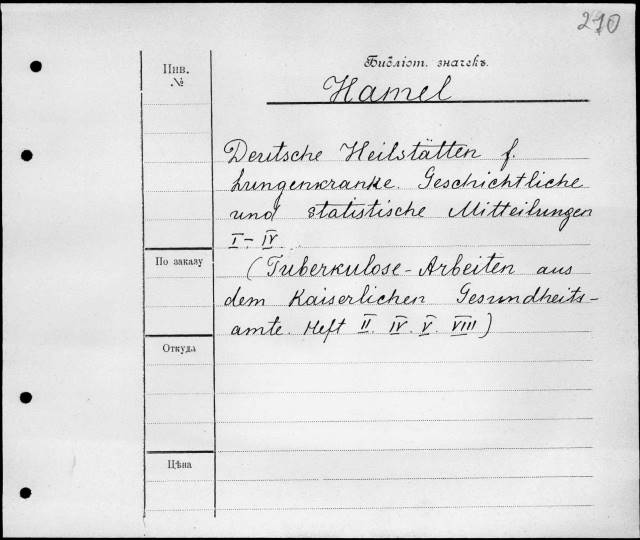 210
Библіот. значекъ.
Hamel
Инв.
№
Deutsche Heilstätten f.
Lungenkranke. Geschichtliche
und statistische Mitteilungen
I-IV
По заказу
(Tuberkulose-Arbeiten aus
dem Kaiserlichen Gesundheits-
amte. Heft II. IV. V. VIII)
Откуда
Цѣна